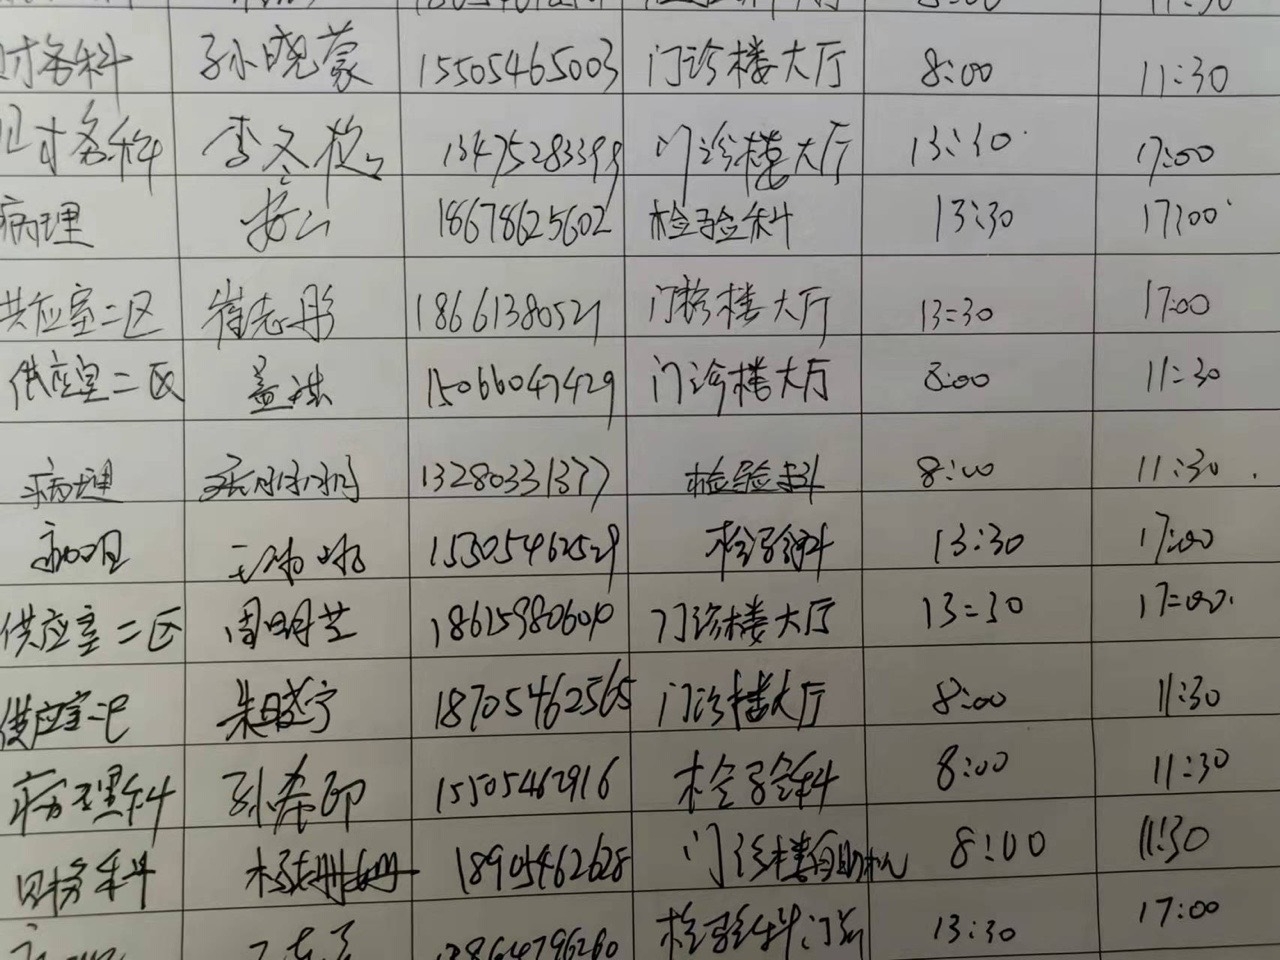 财务科 孙晓蒙 15505465003 门诊楼大厅 8:00 11:30
财务科 李冬梅 13475283399 门诊楼大厅 13:30 17:00
病理 18678625602 检验科 13:30 17:00
供应室二区 崔志彤 18661380521 门诊楼大厅 13:30 17:00
供应室二区 盖洪 15066047429 门诊楼大厅 8:00 11:30
病理 13280331377 检验科 8:00 11:30
病理 15305462529 检验科 13:30 17:00
供应室二区 周明芝 18615980600 门诊楼大厅 13:30 17:00
供应室二区 朱晓宁 18705462565 门诊楼大厅 8:00 11:30
病理科 孙希印 15505462916 检验科 8:00 11:30
财务科 18905462628 门诊楼自助机 8:00 11:30
检验科门诊 13:30 17:00